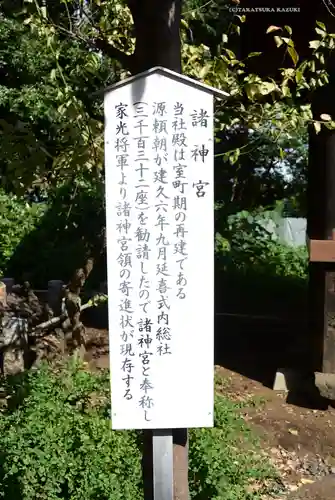 諸神宮
当社殿は室町期の再建である
源頼朝が建久六年九月延喜式内総社
(三千百三十二座)を勧請したので諸神宮と奉称し
家光将軍より諸神宮領の寄進状が現存する
(C)TARATSUKA KAZUO